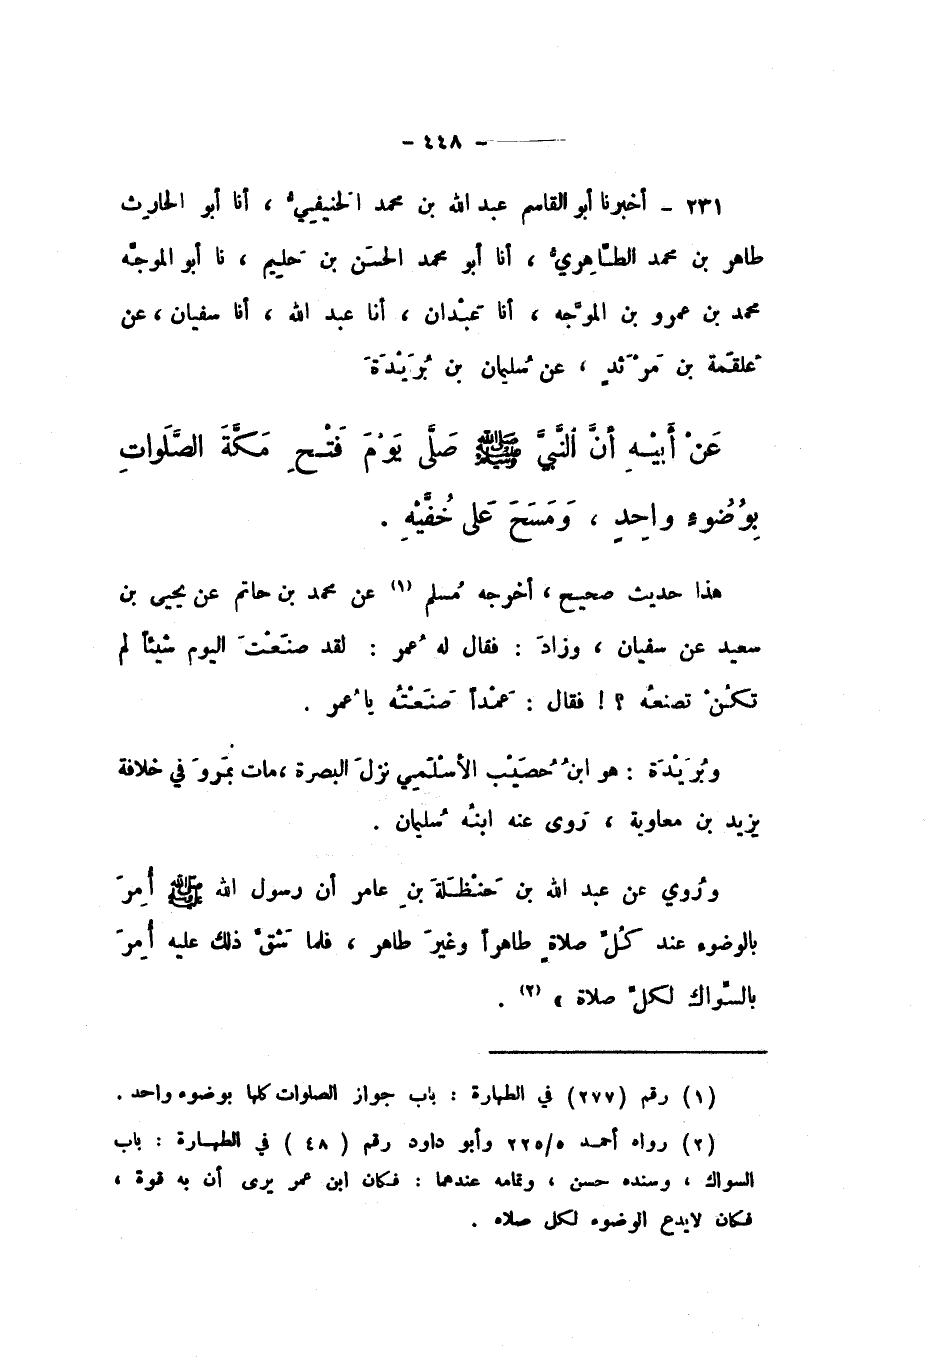 - ٤٤٨ -
٢٣١ - أخبرنا أبو القاسم عبد الله بن محمد الحَنيفيُّ ، أنا أبو الحارث
طاهر بن محمد الطَّاهِريُّ ، أنا أبو محمد الحسَن بن حَليم ، نا أبو الموجَّه
محمد بن عمرو بن الموَجَّه ، أنا عَبْدان ، أنا عبد الله ، أنا سفيان ، عن
عَلقَمة بن مَرْثَدٍ ، عن سُليمان بن بُرَيْدَةَ
عَنْ أَبِيْهِ أَنَّ النَّبِيَّ ﷺ صَلَّى يَوْمَ فَتْحِ مَكَّةَ الصَّلَواتِ
بِوُضُوءٍ واحِدٍ ، وَمَسَحَ عَلى خُفَّيْهِ .
هذا حديث صحيح ، أخرجه مُسلم (١) عن محمد بن حاتم عن يحيى بن
سعيد عن سفيان ، وزادَ : فقال له عُمر : لقد صنَعْتَ اليوم شيئاً لم
تكُنْ تصنعُه ؟ ! فقال : عَمْداً صَنَعْتُه يا عُمر .
وبُرَيْدَة : هو ابنُ حُصَيْب الأسْلَمي نزلَ البصرة ، مات بمَروَ في خلافة
يزيد بن معاوية ، رَوى عنه ابنُه سُليمان .
ورُوي عن عبد الله بن حَنْظَلَةَ بنِ عامر أن رسول الله ﷺ أُمِرَ
بالوضوء عند كُلِّ صلاةٍ طاهراً وغيرَ طاهر ، فلما شَقَّ ذلك عليه أُمِرَ
بالسِّواك لكلِّ صلاة » (٢) .
(١) رقم (٢٧٧) في الطهارة : باب جواز الصلوات كلها بوضوء واحد .
(٢) رواه أحمد ٢٢٥/٥ وأبو داود رقم ( ٤٨ ) في الطهارة : باب
السواك ، وسنده حسن ، وتمامه عندهما : فكان ابن عمر يرى أن به قوة ،
فكان لايدع الوضوء لكل صلاه .